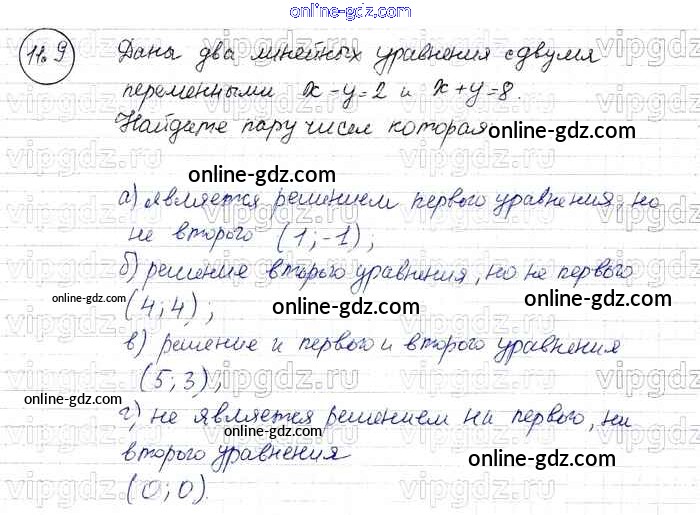 online-gdz.com
11.9 Даны два линейных уравнения с двумя
переменными x-y=2 и x+y=8.
Найдите пару чисел которая online-gdz.com
online-gdz.com
а) является решением первого уравнения, но
не второго (1;-1);
online-gdz.com
б) решение второго уравнения, но не первого
online-gdz.com (4;4); online-gdz.com online-gdz.com
в) решение и первого и второго уравнения
online-gdz.com (5;3);
г) не является решением ни первого, ни
online-gdz.com
второго уравнения online-gdz.com
(0;0).